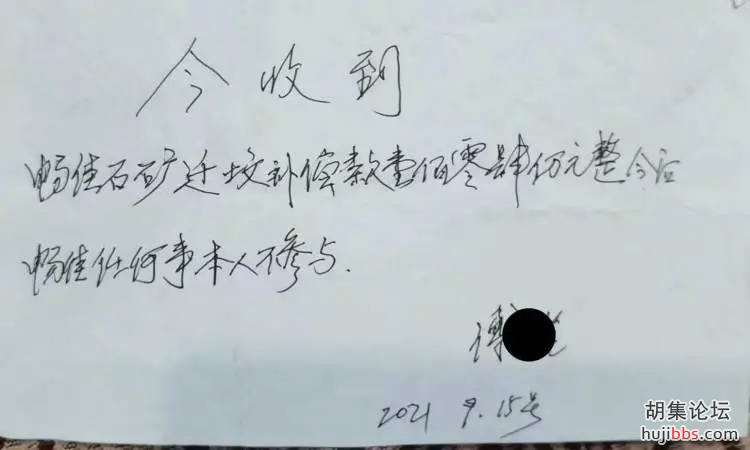 今收到
畅佳石矿迁坟补偿款壹佰零肆万元整今后
畅佳任何事本人不参与.
2021 9.15号
胡集论坛
hujibbs.com